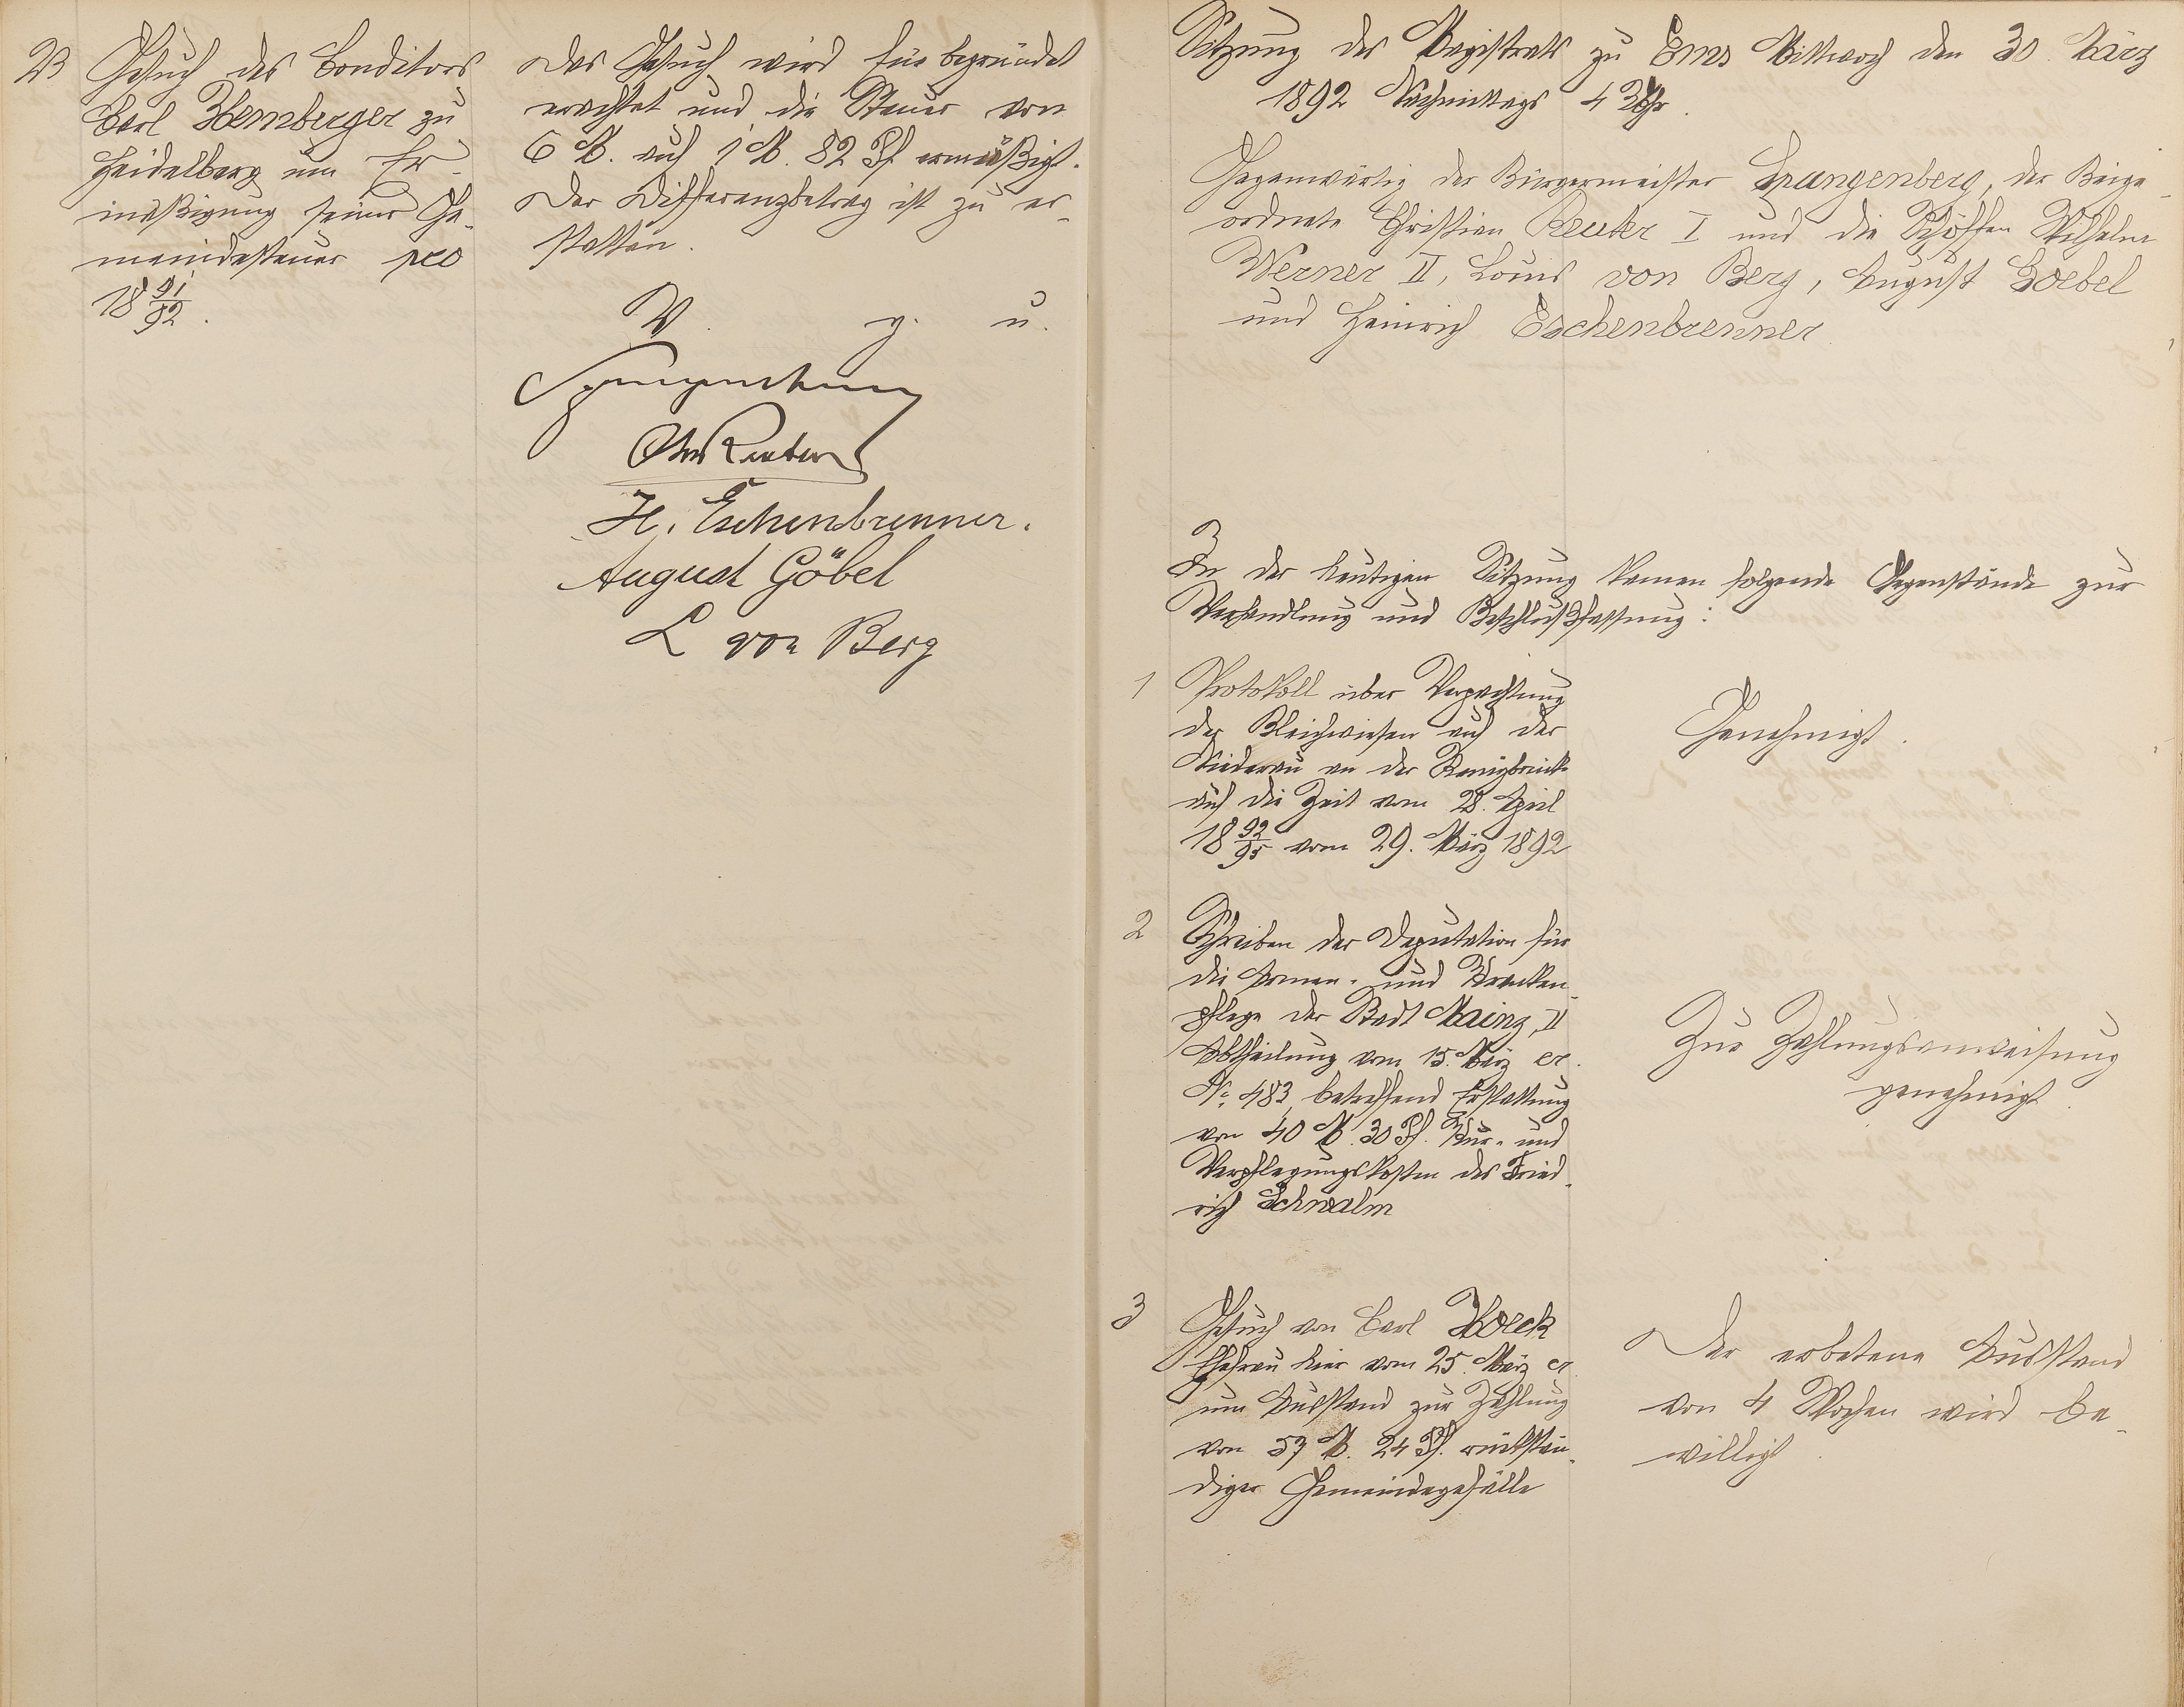 23
Gesuch des Conditors
Carl Hemberger zu
Heidelberg um Er-
mäßigung seiner Ge-
meindesteuer pro
18 91/92.
Das Gesuch wird für begründet
erachtet und die Steuer von
6 M. auf 1 M. 82 Pf. ermäßigt.
Der Differenzbetrag ist zu er-
statten.
V. g. u.
Spangenberg
Chr Reuter
H. Eschenbrenner.
August Göbel
L von Berg
Sitzung des Magistrats zu Ems Mittwoch den 30. März
1892 Nachmittags 4 Uhr.
Gegenwärtig der Bürgermeister Spangenberg, der Beige-
ordnete Christian Reuter I und die Schöffen Wilhelm
Werner II, Louis von Berg, August Goebel
und Heinrich Eschenbrenner.
In der heutigen Sitzung kamen folgende Gegenstände zur
Verhandlung und Beschlußfassung:
1
Protokoll über Verpachtung
der Bleichwiesen auf der
Niederau an der
auf die Zeit vom 28. April
18 92/95 vom 29. März 1892
Genehmigt.
2
Schreiben der Deputation für
die Armen- und Kranken-
pflege der Stadt Mainz, II
Abtheilung vom 15. März cr.
No. 483, betreffend Erstattung
von 40 M. 30 Pf. Kur- und
Verpflegungskosten des Fried-
rich Schwalm
Zur Zahlungsanweisung
genehmigt.
3
Gesuch von Carl Hoeck
Ehefrau hier vom 25. März cr
um Ausstand zur Zahlung
von 57 M. 24 Pf. rückstän-
diger Gemeindegefälle
Der erbetene Ausstand
von 4 Wochen wird be-
willigt.